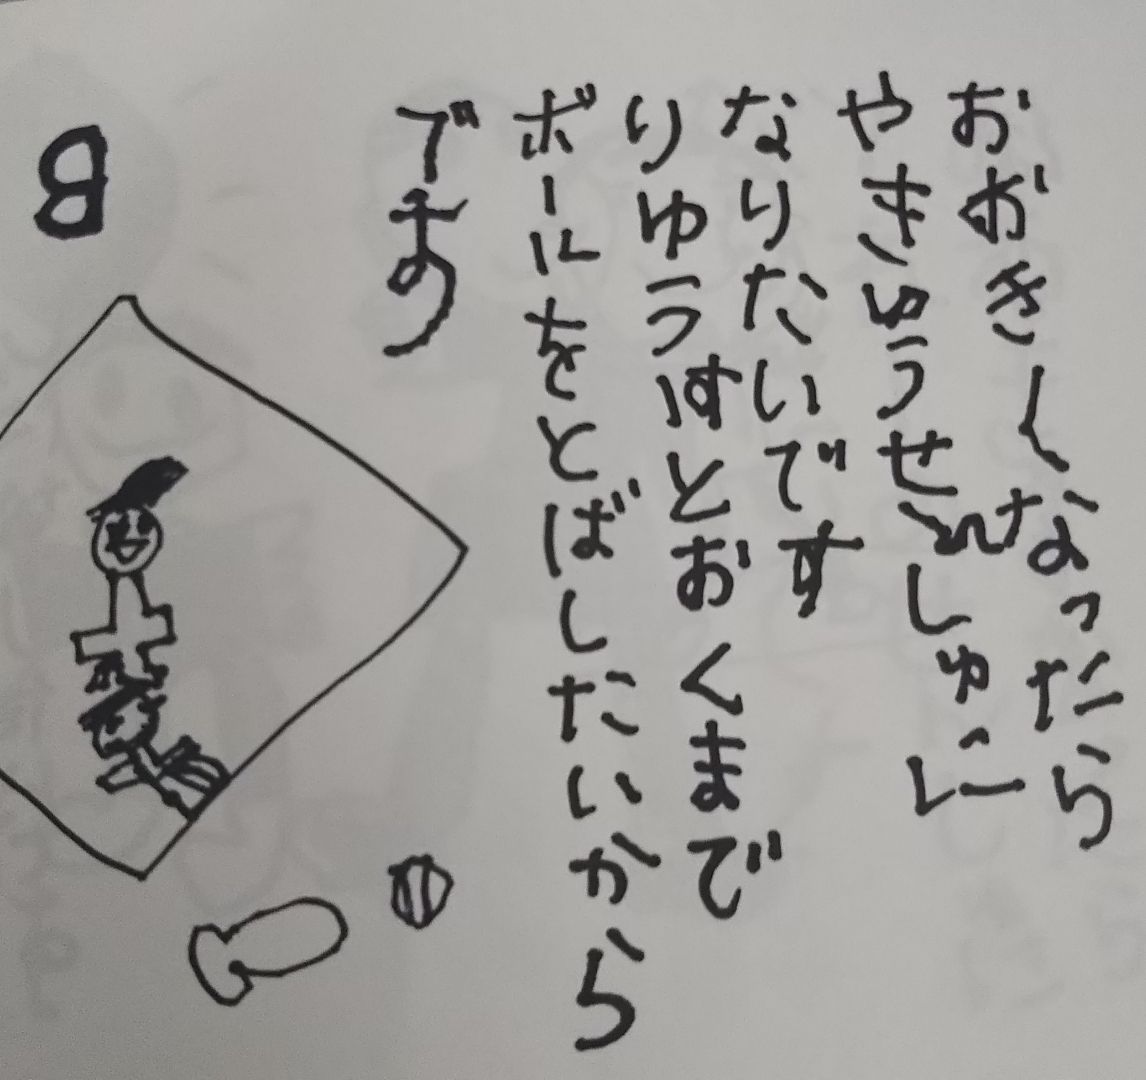 おおきくなったら
やきゅうせんしゅに
なりたいです
りゆうはとおくまで
ボールをとばしたいから
です
8